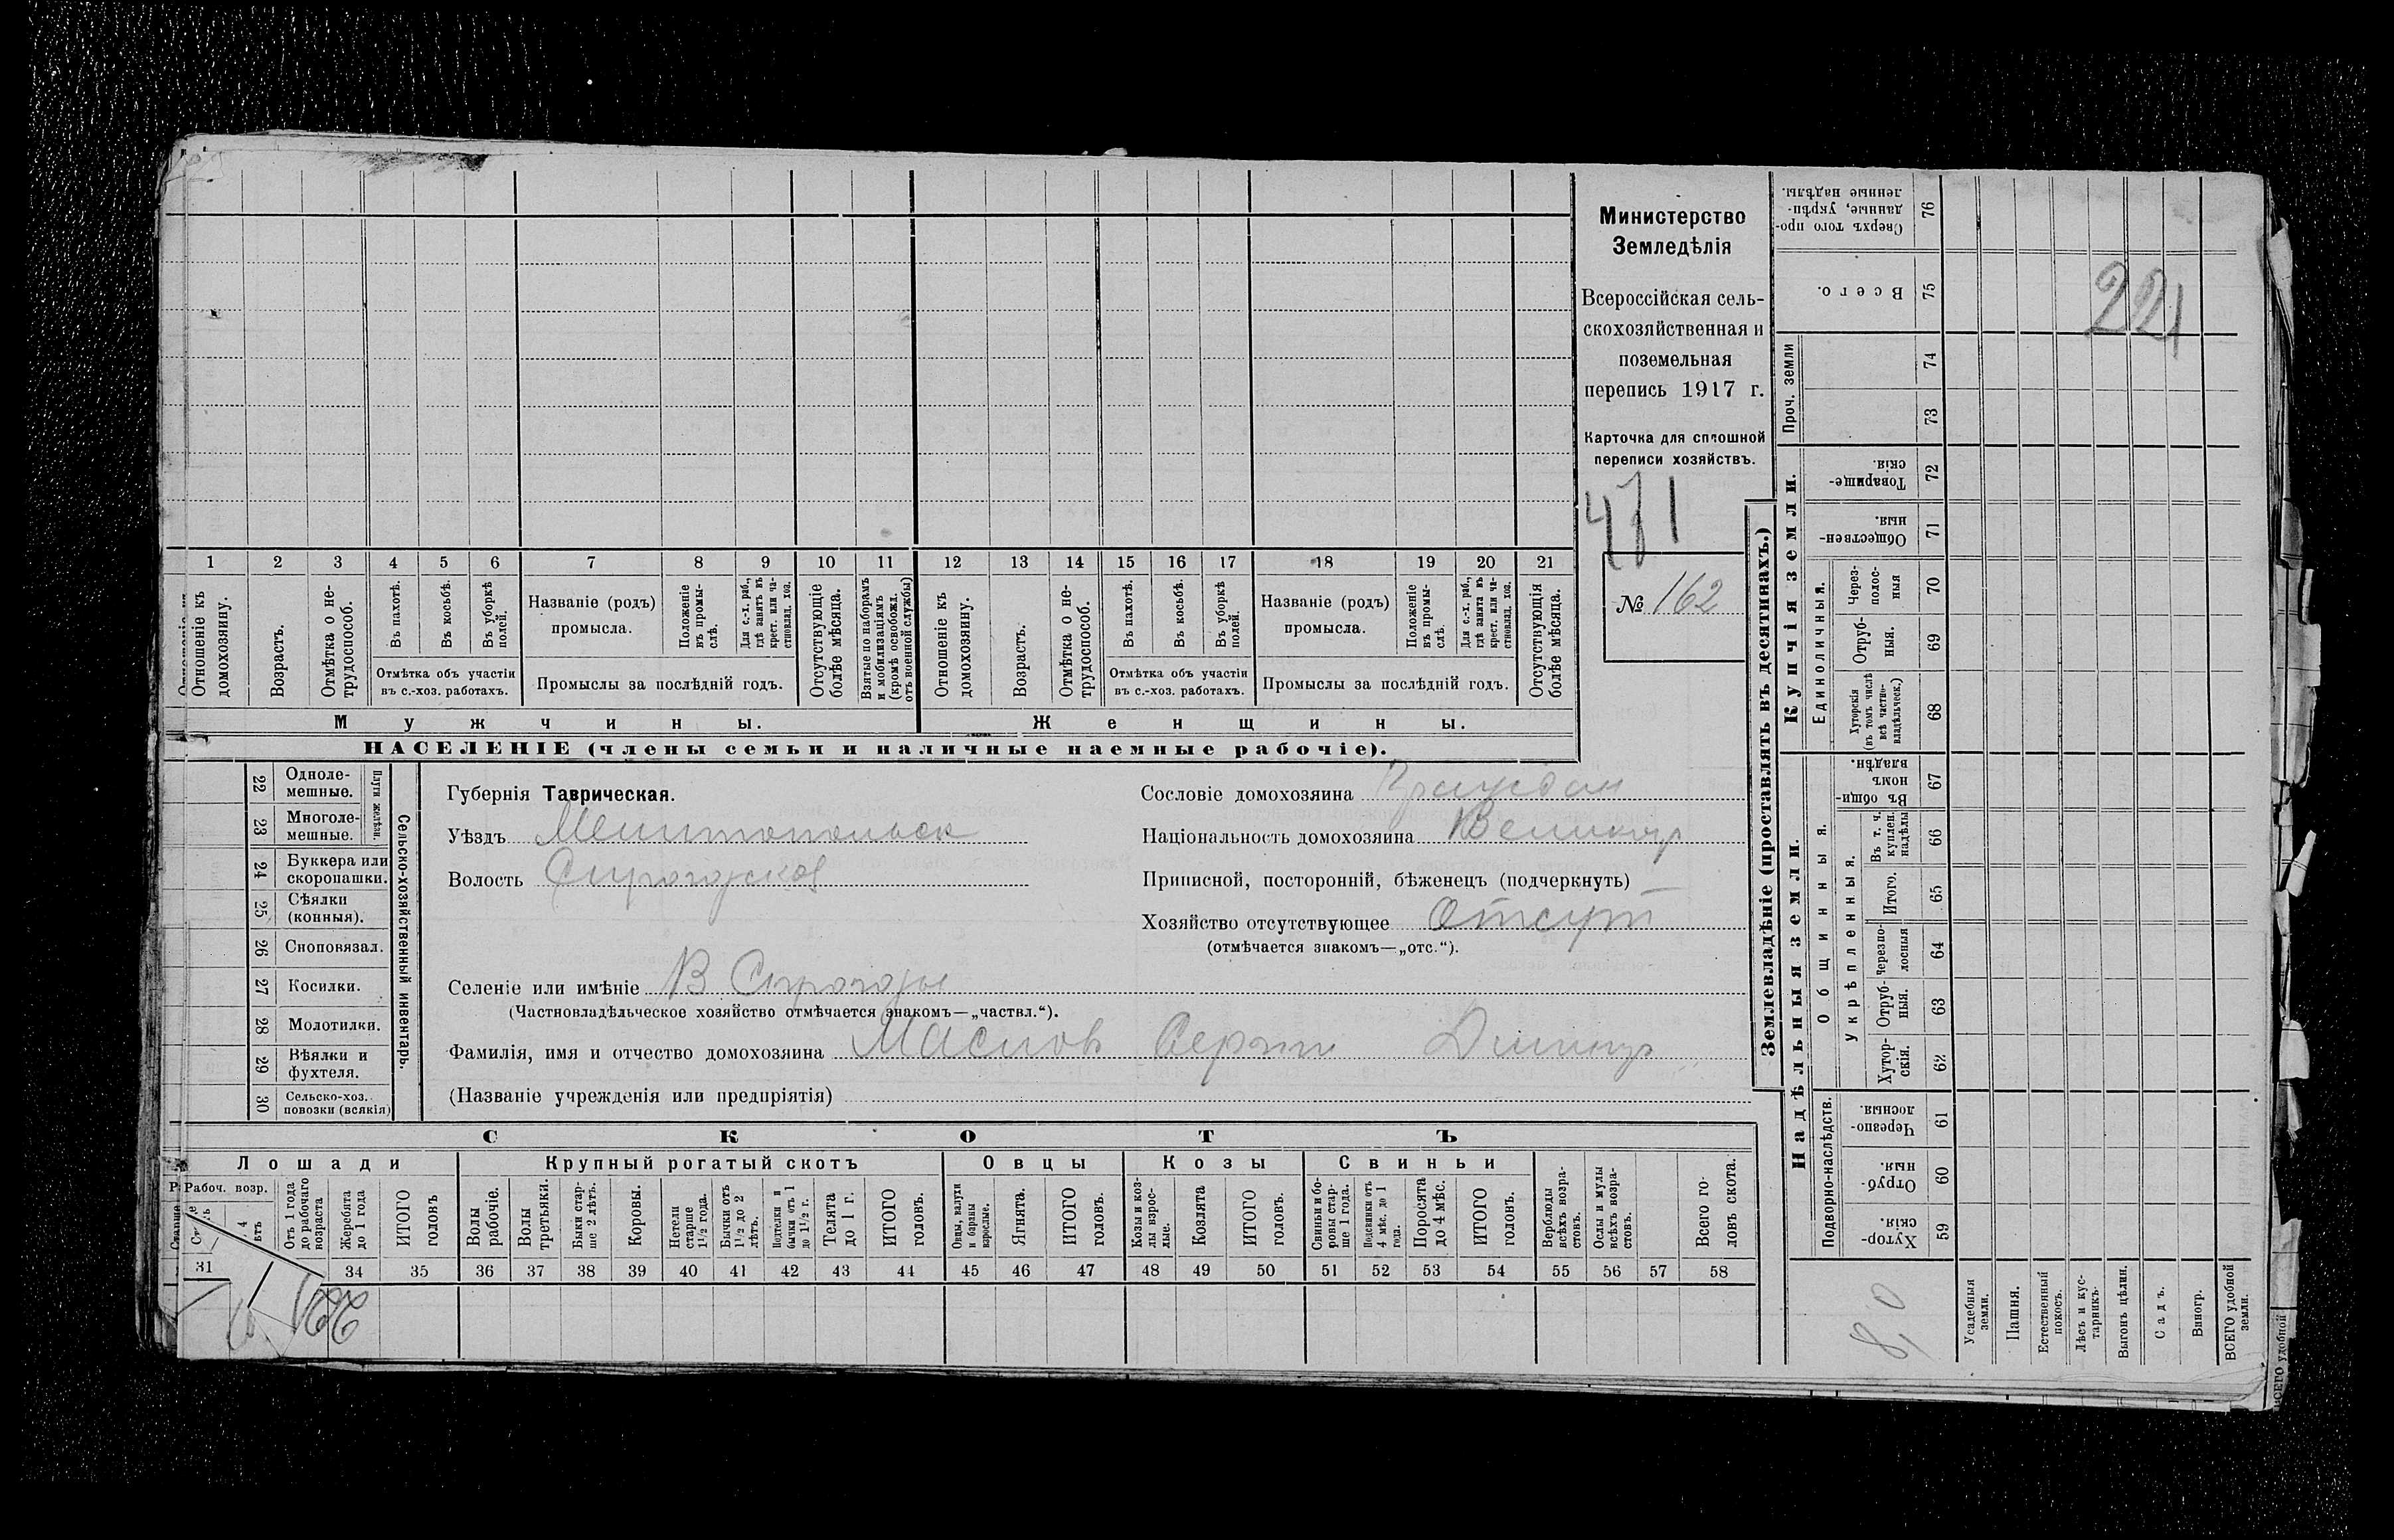 Министерство
Земледѣлія
Всероссійская сель-
скохозяйственная и
поземельная
перепись 1917 г.
Карточка для сплошной
переписи хозяйствъ.
471
№ 162
221
1 2 3 4 5 6 7 8 9 10 11 12 13 14 15 16 17 18 19 20 21
Отношеніе къ домохозяину.
Возрастъ.
Отмѣтка о не-трудоспособ.
Въ пахотѣ.
Въ косьбѣ.
Въ уборкѣ полей.
Отмѣтка объ участіи въ с.-хоз. работахъ.
Названіе (родъ) промысла.
Положеніе въ промы-слѣ.
Для с.-х. раб., гдѣ занятъ въ крест. или ча-стновлад. хоз.
Промыслы за послѣдній годъ.
Отсутствующіе болѣе мѣсяца.
Взятые по наборамъ и мобилизаціямъ (кромѣ освобожд. отъ военной службы)
Отношеніе къ домохозяину.
Возрастъ.
Отмѣтка о не-трудоспособ.
Въ пахотѣ.
Въ косьбѣ.
Въ уборкѣ полей.
Отмѣтка объ участіи въ с.-хоз. работахъ.
Названіе (родъ) промысла.
Положеніе въ промы-слѣ.
Для с.-х. раб., гдѣ занята въ крест. или ча-стновлад. хоз.
Промыслы за послѣдній годъ.
Отсутствующія болѣе мѣсяца.
Мужчины. Женщины.
НАСЕЛЕНІЕ (члены семьи и наличные наемные рабочіе).
22 Одноле-мешные.
23 Многоле-мешные.
Плуги желѣзн.
24 Буккера или скоропашки.
25 Сѣялки (конныя).
26 Сноповязал.
27 Косилки.
28 Молотилки.
29 Вѣялки и фухтеля.
30 Сельско-хоз. повозки (всякія)
Сельско-хозяйственный инвентарь.
Губернія Таврическая.
Уѣздъ Мелитопольск
Волость Сирогозской
Сословіе домохозяина Граждан
Національность домохозяина Великор
Приписной, посторонній, бѣженецъ (подчеркнуть)
Хозяйство отсутствующее Отсут
(отмѣчается знакомъ—„отс.“).
Селеніе или имѣніе В Сирогозы
(Частновладѣльческое хозяйство отмѣчается знакомъ—„частвл.“).
Фамилія, имя и отчество домохозяина Маслов Сергѣй
(Названіе учрежденія или предпріятія)
СКОТЪ
Лошади Крупный рогатый скотъ Овцы Козы Свиньи
Рабоч. возр.
Отъ 1 года до рабочаго возраста
Жеребята до 1 года
ИТОГО головъ
Волы рабочіе.
Волы третьяки.
Быки стар-ше 2 лѣтъ.
Коровы.
Нетели старше 1½ года.
Бычки отъ 1½ до 2 лѣтъ.
Подтелки и бычки отъ 1 до 1½ г.
Телята до 1 г.
ИТОГО головъ.
Овцы, валухи и бараны взрослые.
Ягнята.
ИТОГО головъ.
Козы и коз-лы взрос-лые.
Козлята
ИТОГО головъ.
Свиньи и бо-ровы стар-ше 1 года.
Подсвинки отъ 4 мѣс. до 1 года.
Поросята до 4 мѣс.
ИТОГО головъ.
Верблюды всѣхъ возра-стовъ.
Ослы и мулы всѣхъ возра-стовъ.
Всего го-ловъ скота.
31 34 35 36 37 38 39 40 41 42 43 44 45 46 47 48 49 50 51 52 53 54 55 56 57 58
221
Землевладѣніе (проставлять въ десятинахъ.)
Купчія земли.
Надѣльныя земли.
Сверхъ того про-данные, укрѣп-ленные надѣлы. 76
Всего. 75
Проч. земли 74 73
Товарище-скія. 72
Обществен-ныя. 71
Единоличныя.
Через-полос-ныя 70
Отруб-ныя. 69
Хуторскія (въ томъ числѣ всѣ частно-владѣльческ.) 68
Общинныя.
Въ общи-номъ владѣн. 67
Укрѣпленныя.
Въ т. ч. куплен. надѣлы 66
Итого. 65
Черезпо-лосныя 64
Отруб-ныя. 63
Хутор-скія. 62
Подворно-наслѣдств.
Черезпо-лосныя. 61
Отруб-ныя. 60
Хутор-скія. 59
Усадебныя земли.
Пашня.
Естественный покосъ.
Лѣсъ и кус-тарникъ.
Выгонъ цѣлин.
Садъ.
Виногр.
ВСЕГО удобной земли.